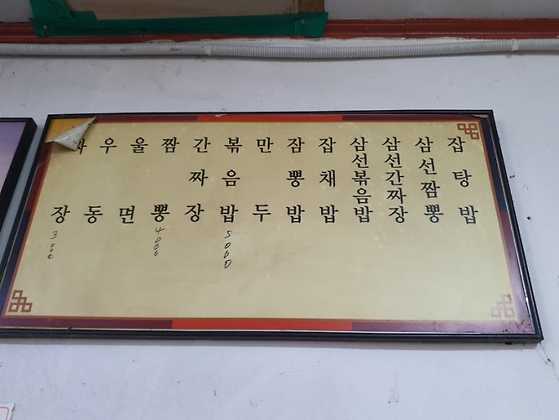 짜장
우동
울면
짬뽕
4000
간짜장
볶음밥
5000
만두
잠뽕밥
잡채밥
삼선볶음밥
삼선간짜장
삼선짬뽕
잡탕밥